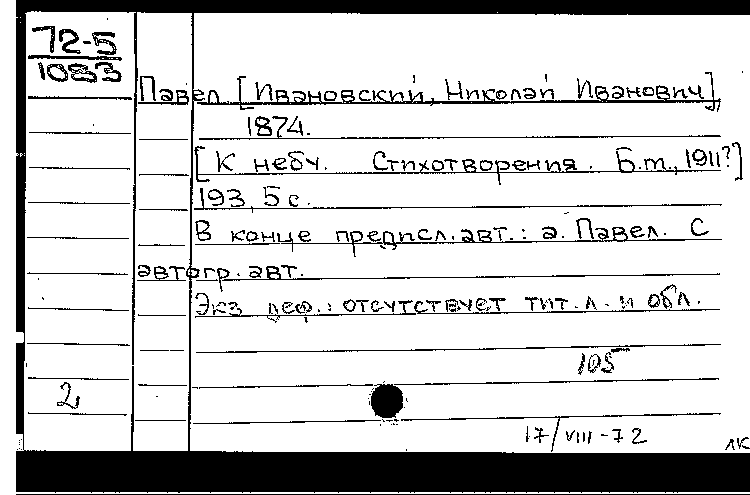 72-5
1083
Павел [Ивановский, Николай Иванович],
1874.
[К небу. Стихотворения. Б.т., 1911?]
193, 5 с.
В конце предисл. авт.: а. Павел. С
автогр. авт.
Экз деф.: отсутствует тит. л. и обл.
105
2
17/VIII-72
ЛК